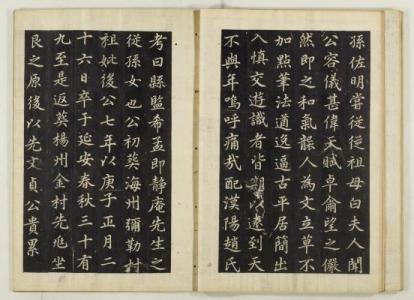 孫佐明嘗從從祖母白夫人聞
公容儀甚偉天賦卓犖望之儼
然即之和氣襲人為文立草不
加點筆法遒逸逼古平居簡出
入慎交遊識者皆期以遠到天
不與年嗚呼痛哉配漢陽趙氏
考曰縣監希孟即靜庵先生之
從孫女也公初葬海州彌勒村
祖妣後公七年以庚子正月二
十六日卒于延安春秋三十有
九至是返葬楊州金村先兆坐
艮之原後以先文貞公貴累